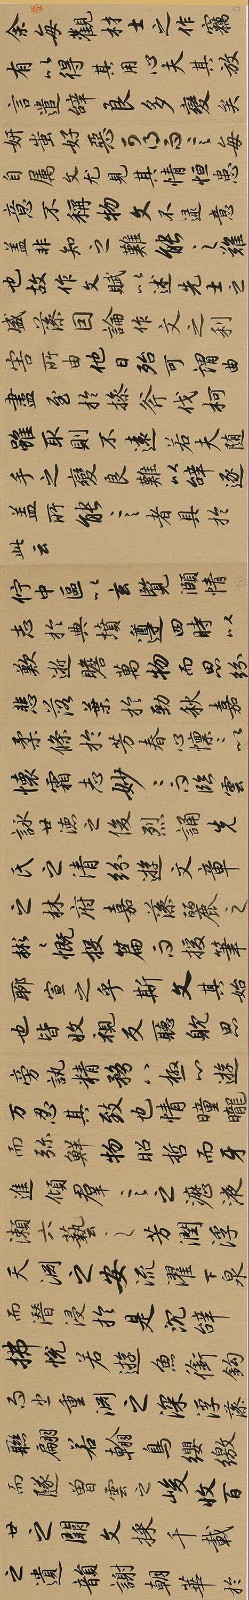 余每觀材士之作竊
有以得其用心夫其放
言遣辭良多變矣
妍蚩好惡可得而言每
自属文尤見其情恒患
意不稱物文不逮意
盖非知之難能之難
也故作文賦以述先士之
盛藻因論作文之利
害所由他日殆可謂曲
盡至於操斧伐柯
雖取則不遠若夫随
手之變良難以辭逐
盖所能言者具於
此云
佇中區以玄覽頤情
志於典墳遵四時以
歎逝瞻萬物而思紛
悲落葉於勁秋嘉
柔條於芳春心懍々以
懷霜志妙々而臨雲
詠世德之俊烈誦先
民之清芬遊文章
之林府嘉藻麗之
彬々慨投篇而援筆
聊宣之乎斯文其始
也皆收視反聽耽思
旁訊精務八極心遊
万仞其致也情曈曨
而弥鮮物昭晢而牙
進傾羣言之瀝液
漱六藝之芳潤浮
天淵之安流濯下泉
而潛浸於是沉辭
拂悦若遊魚銜鉤
而出重淵之深浮藻
聯翩若翰鳥纓繳
而墜曾雲之峻收百
世之闕文採千載
之遺韻謝朝華於